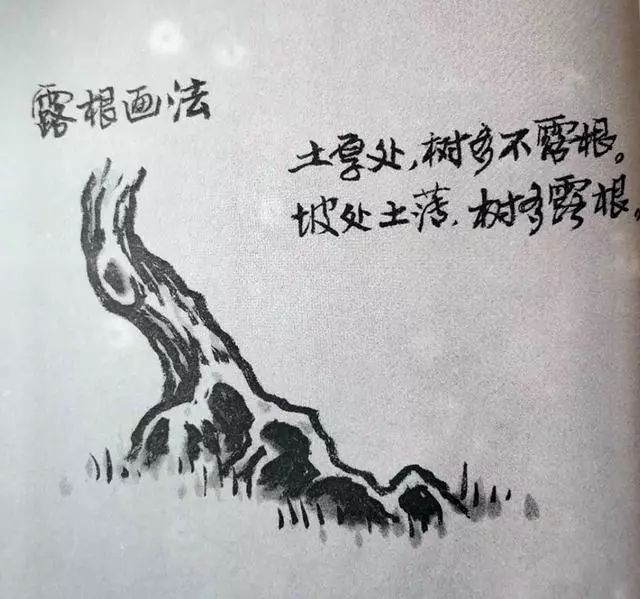 露根画法
土厚处,树多不露根。
坡处土薄,树多露根。